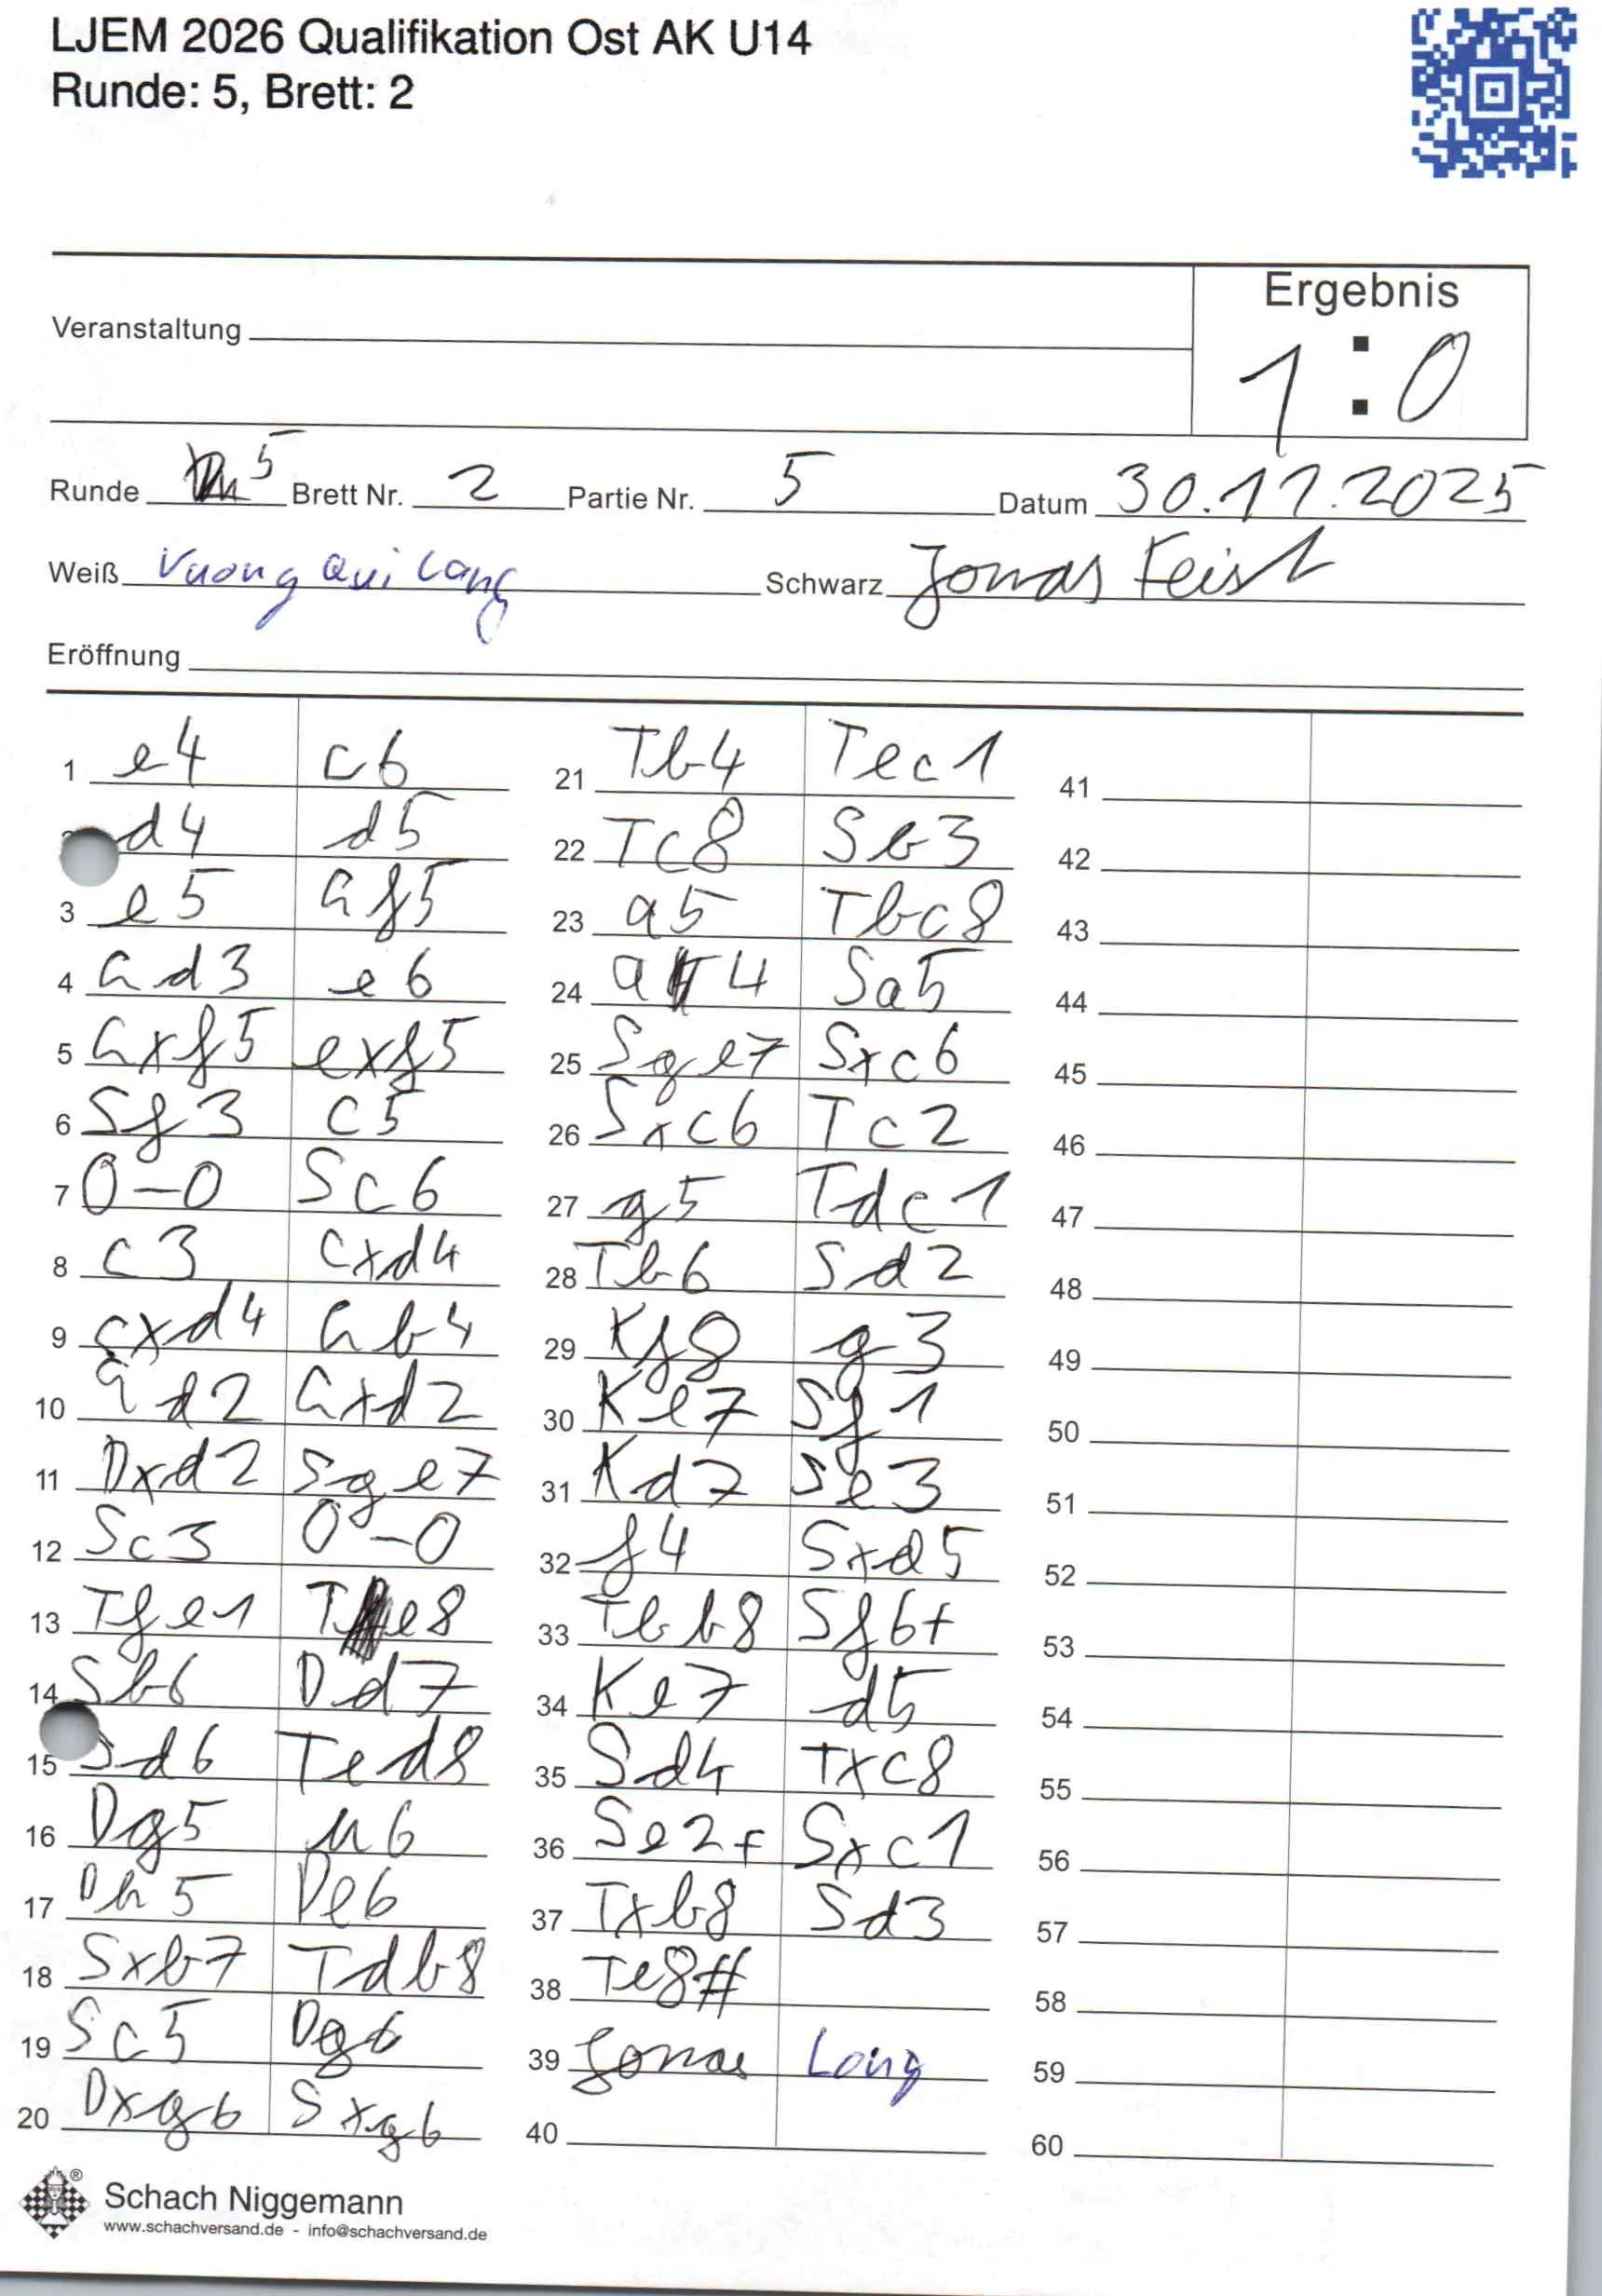 LJEM 2026 Qualifikation Ost AK U14
Runde: 5, Brett: 2
Ergebnis
1:0
Veranstaltung
Runde 5 Brett Nr. 2 Partie Nr. 5 Datum 30.11.2025
Weiß Vuong Qui Long Schwarz Jonas Feist
Eröffnung
1 e4 c6
d4 d5
3 e5 Gf5
4 Gd3 e6
5 Gxf5 exf5
6 Sf3 c5
7 0-0 Sc6
8 c3 cxd4
9 cxd4 Gb4
10 Gd2 Gxd2
11 Dxd2 Sge7
12 Sc3 0-0
13 Tfe1 Te8
14 Sb6 Dd7
15 Sd6 Ted8
16 Dg5 h6
17 Dh5 De6
18 Sxb7 Tdb8
19 Sc5 Dg6
20 Dxg6 Sxg6
21 Tb4 Tec1
22 Tc8 Sb3
23 a5 Tbc8
24 a4 Sa5
25 Sge7 Sxc6
26 Sxc6 Tc2
27 g5 Tdc1
28 Tb6 Sd2
29 Kf8 g3
30 Ke7 Sf1
31 Kd7 Se3
32 f4 Sxd5
33 Tbb8 Sf6+
34 Ke7 d5
35 Sd4 Txc8
36 Se2+ Sxc1
37 Txb8 Sd3
38 Te8#
39 Jonas Long
40
41
42
43
44
45
46
47
48
49
50
51
52
53
54
55
56
57
58
59
60
Schach Niggemann
www.schachversand.de - info@schachversand.de